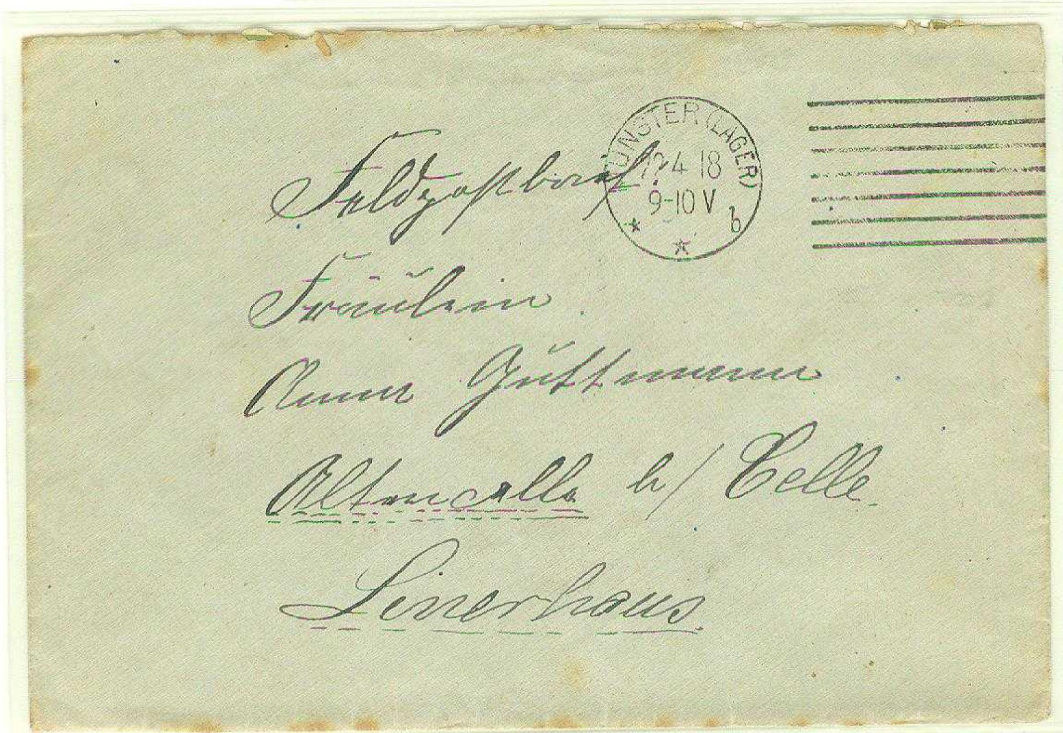 MÜNSTER (LAGER)
12.4.18
9-10 V
* * b
Feldpostbrief.
Fräulein
Anna Guttmann
Altencelle b/ Celle.
Linerhaus.